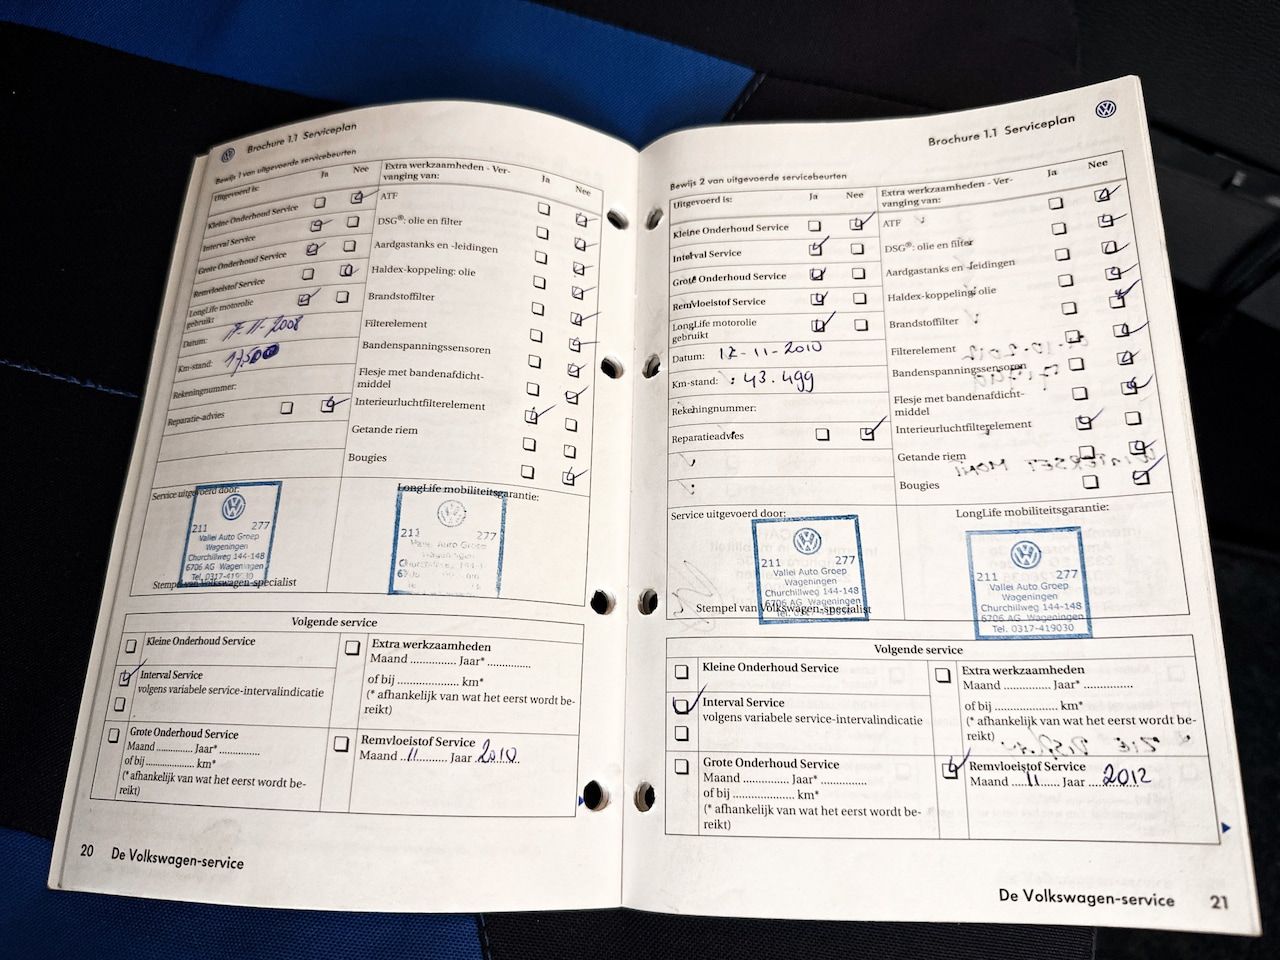 Brochure 1.1 Serviceplan
Bewijs 1 van uitgevoerde servicebeurten
Uitgevoerd is:
Ja
Nee
Kleine Onderhoud Service
Interval Service
Grote Onderhoud Service
Remvloeistof Service
LongLife motorolie
gebruikt:
Datum: 17-11-2008
Km-stand: 17500
Rekeningnummer:
Reparatie-advies
Extra werkzaamheden - Ver-
vanging van:
Ja
Nee
ATF
DSG®: olie en filter
Aardgastanks en -leidingen
Haldex-koppeling: olie
Brandstoffilter
Filterelement
Bandenspanningssensoren
Flesje met bandenafdicht-
middel
Interieurluchtfilterelement
Getande riem
Bougies
Service uitgevoerd door:
211 277
Vallei Auto Groep
Wageningen
Churchillweg 144-148
6706 AG Wageningen
Tel. 0317-419030
Stempel van Volkswagen-specialist
LongLife mobiliteitsgarantie:
211 277
Vallei Auto Groep
Wageningen
Volgende service
Kleine Onderhoud Service
Interval Service
volgens variabele service-intervalindicatie
Grote Onderhoud Service
Maand ............. Jaar* ................
of bij .................... km*
(* afhankelijk van wat het eerst wordt be-
reikt)
Extra werkzaamheden
Maand .............. Jaar* ..............
of bij .................... km*
(* afhankelijk van wat het eerst wordt be-
reikt)
Remvloeistof Service
Maand ..11.......... Jaar .2010..
20 De Volkswagen-service
Brochure 1.1 Serviceplan
Bewijs 2 van uitgevoerde servicebeurten
Uitgevoerd is:
Ja
Nee
Kleine Onderhoud Service
Interval Service
Grote Onderhoud Service
Remvloeistof Service
LongLife motorolie
gebruikt
Datum: 12-11-2010
Km-stand: : 43.499
Rekeningnummer:
Reparatieadvies
Extra werkzaamheden - Ver-
vanging van:
Ja
Nee
ATF
DSG®: olie en filter
Aardgastanks en -leidingen
Haldex-koppeling: olie
Brandstoffilter
Filterelement
Bandenspanningssensoren
Flesje met bandenafdicht-
middel
Interieurluchtfilterelement
Getande riem
Bougies
Service uitgevoerd door:
211 277
Vallei Auto Groep
Wageningen
Churchillweg 144-148
6706 AG Wageningen
Stempel van Volkswagen-specialist
LongLife mobiliteitsgarantie:
211 277
Vallei Auto Groep
Wageningen
Churchillweg 144-148
6706 AG Wageningen
Tel. 0317-419030
Volgende service
Kleine Onderhoud Service
Interval Service
volgens variabele service-intervalindicatie
Grote Onderhoud Service
Maand ............. Jaar* ................
of bij .................... km*
(* afhankelijk van wat het eerst wordt be-
reikt)
Extra werkzaamheden
Maand .............. Jaar* ..............
of bij .................... km*
(* afhankelijk van wat het eerst wordt be-
reikt)
Remvloeistof Service
Maand .....11...... Jaar ...2012...
De Volkswagen-service 21